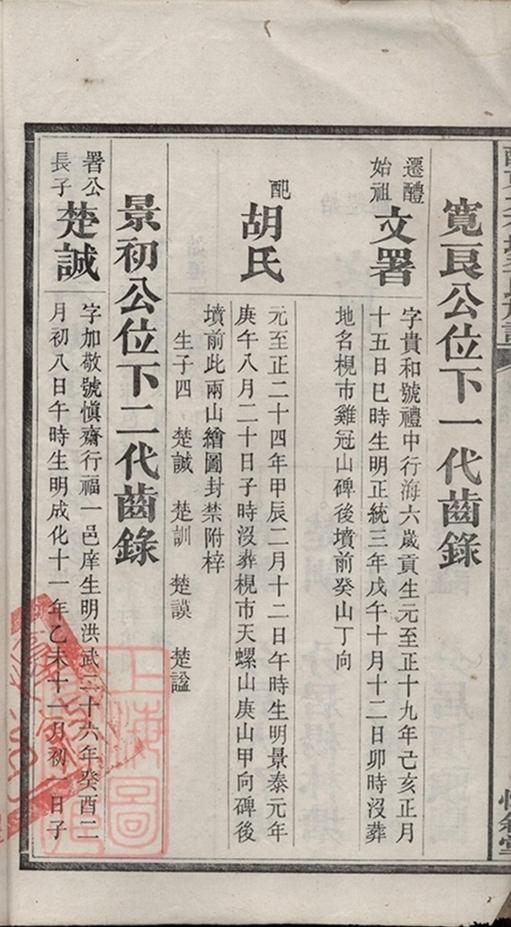 寬良公位下一代齒錄
遷醴
始祖
文署
字貴和號禮中行海六歲貢生元至正十九年己亥正月
十五日巳時生明正統三年戊午十月十二日卯時沒葬
地名梘市雞冠山碑後墳前癸山丁向
配
胡氏
元至正二十四年甲辰二月十二日午時生明景泰元年
庚午八月二十日子時沒葬梘市天螺山庚山甲向碑後
墳前此兩山繪圖封禁附梓
生子四 楚誠 楚訓 楚謨 楚謚
景初公位下二代齒錄
署公
長子
楚誠
字加敬號愼齋行福一邑庠生明洪武二十六年癸酉二
月初八日午時生明成化十一年乙未十一月初一日子
上海圖